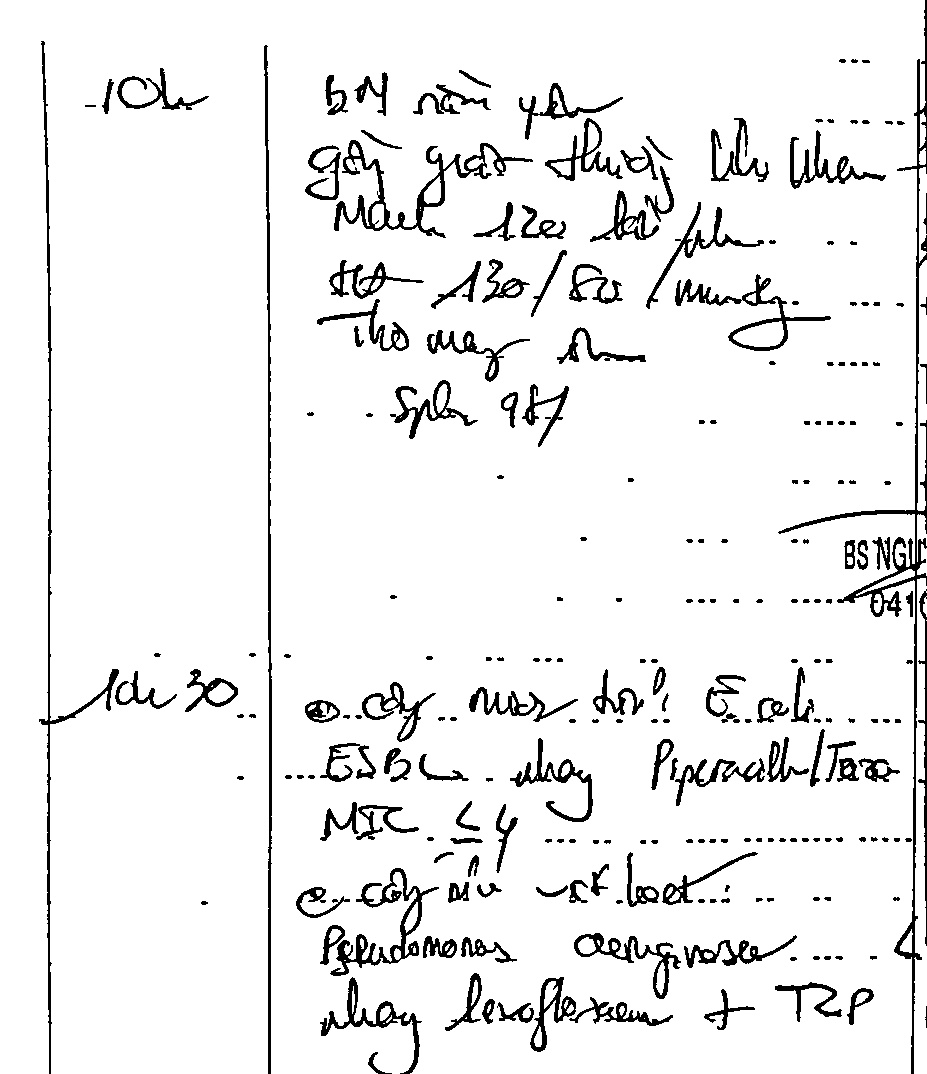 10h
BN nằm yên
gồng giật thường khi khám
Mạch 120 lần/ph
HA 130/80 /mmHg
Thở máy
SpO2 98%
BS NGU
041
10h30
cấy nước tiểu: E coli
ESBL nhạy Piperacillin/Tazo
MIC ≤ 4
cấy mủ loét:
Pseudomonas aeruginosa
nhạy levofloxacin + TZP